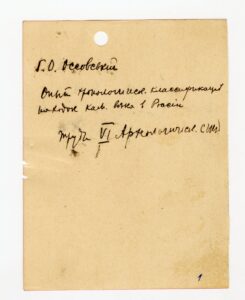 Г. О. Оссовській
Опыт хронологическ. классификации
находок кам. века в Россіи
Труды VI Археологическ. съезд
I
1